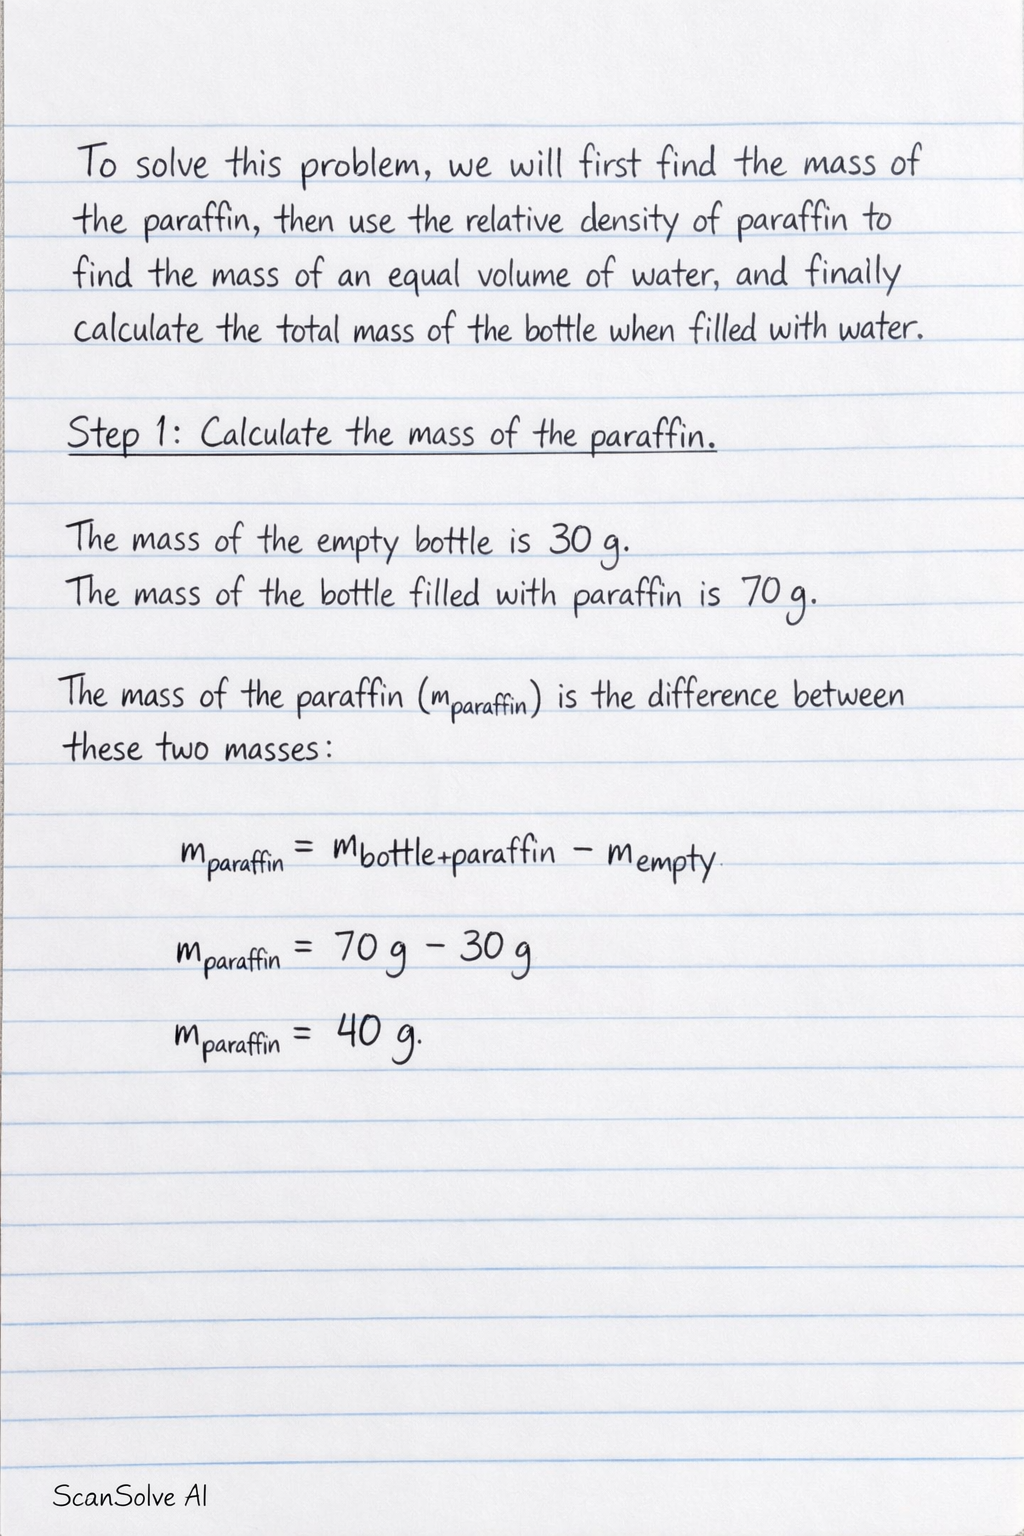 To solve this problem, we will first find the mass of
the paraffin, then use the relative density of paraffin to
find the mass of an equal volume of water, and finally
calculate the total mass of the bottle when filled with water.
Step 1: Calculate the mass of the paraffin.
The mass of the empty bottle is 30 g.
The mass of the bottle filled with paraffin is 70 g.
The mass of the paraffin (m_paraffin) is the difference between
these two masses:
m_paraffin = m_bottle+paraffin − m_empty.
m_paraffin = 70 g − 30 g
m_paraffin = 40 g.
ScanSolve AI